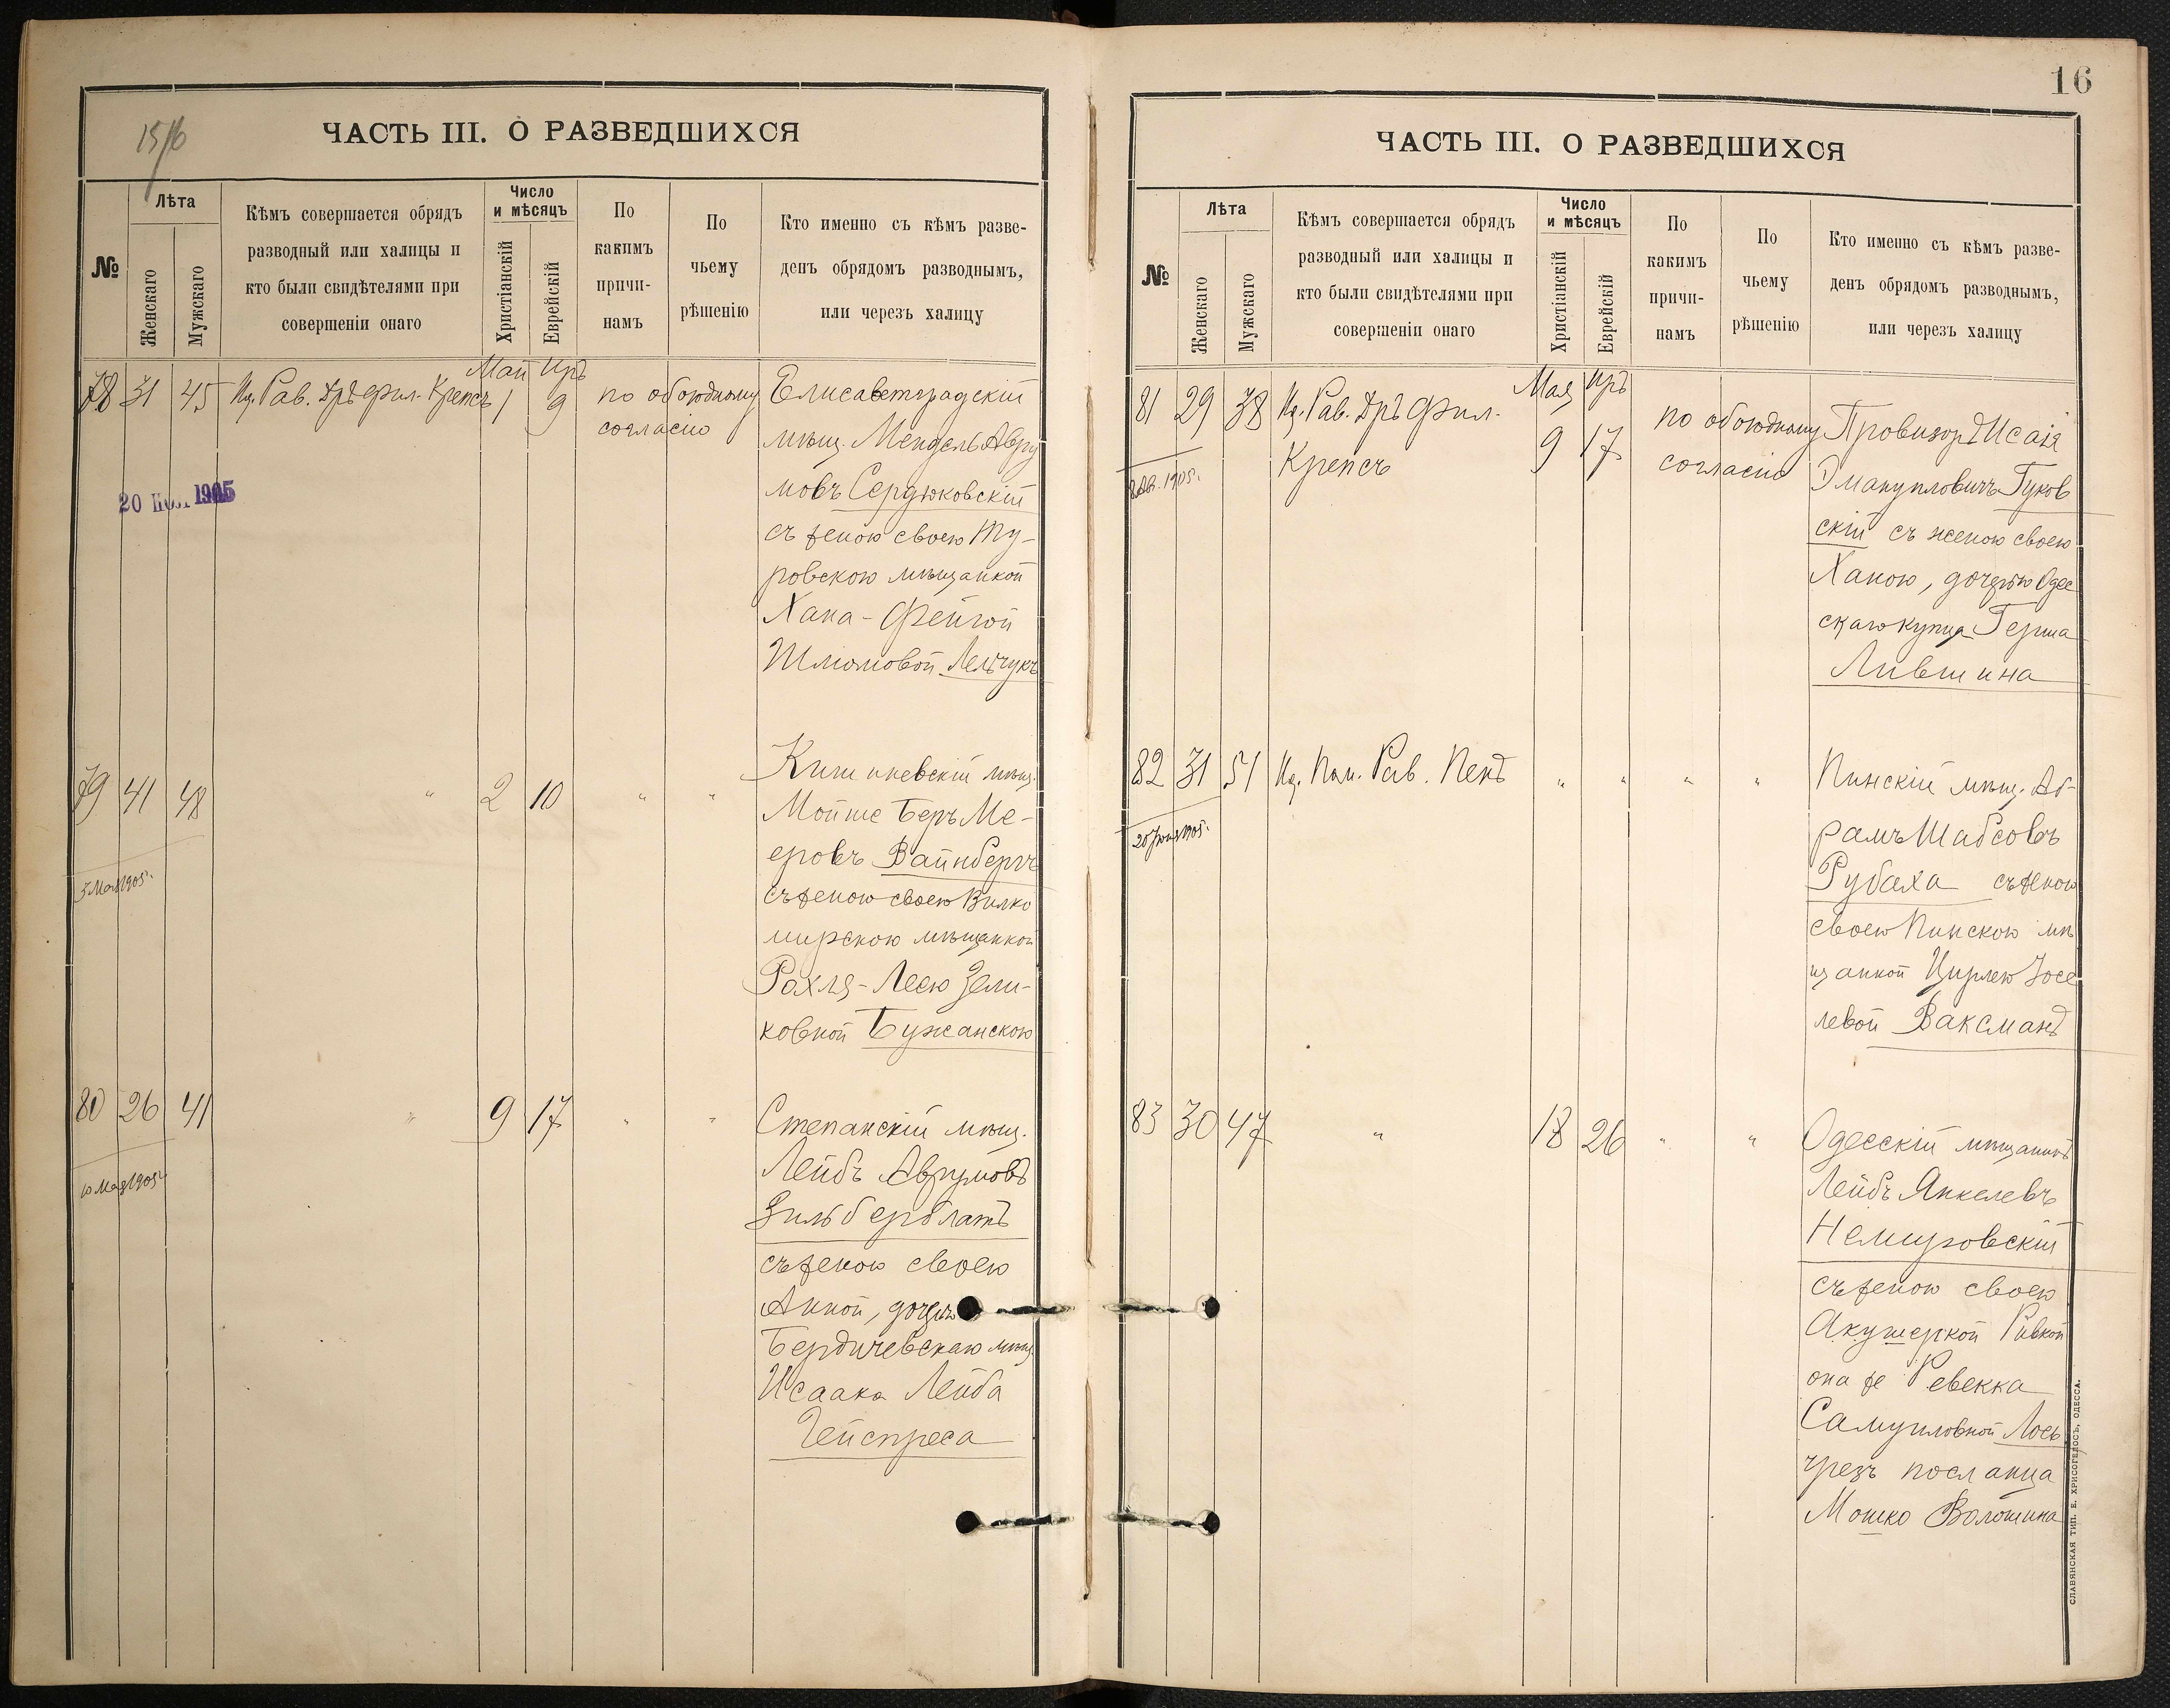 15/16
ЧАСТЬ III. О РАЗВЕДШИХСЯ
№
Лѣта
Женскаго
Мужскаго
Кѣмъ совершается обрядъ
разводный или халицы и
кто были свидѣтелями при
совершеніи онаго
Число
и мѣсяцъ
Христіанскій
Еврейскій
По
какимъ
причи-
намъ
По
чьему
рѣшенію
Кто именно съ кѣмъ разве-
денъ обрядомъ разводнымъ,
или черезъ халицу
Май Иръ
78 31 45 Ид. Рав. Дръ Фил. Крепсъ 1 9 по обоюдному
согласію
Елисаветградскій
мѣщ. Мендель Авру
мовъ Сердюковскій
съ женою своею Ту-
ровскою мѣщанкой
Хана-Фейгой
Шлiомовой Лельчукъ
20 1905
79 41 48 " 2 10 " "
3 Мая 1905г.
Кишиневскій мѣщ.
Мойше Беръ Ме-
еровъ Вайнбергъ
съ женою своею Вилко
мирскою мѣщанкой
Рохля-Леею Зели-
ковной Бужанскою
80 26 41 " 9 17 " "
10 Мая 1905г.
Степанскій мѣщ.
Лейбъ Аврумовъ
Зильберблатъ
съ женою своею
Анной, дочерью
Бердичевскаго мѣщ.
Исаака Лейба
Гейспреса
16
ЧАСТЬ III. О РАЗВЕДШИХСЯ
№
Лѣта
Женскаго
Мужскаго
Кѣмъ совершается обрядъ
разводный или халицы и
кто были свидѣтелями при
совершеніи онаго
Число
и мѣсяцъ
Христіанскій
Еврейскій
По
какимъ
причи-
намъ
По
чьему
рѣшенію
Кто именно съ кѣмъ разве-
денъ обрядомъ разводнымъ,
или черезъ халицу
Мая Иръ
81 29 38 Ид. Рав. Дръ Фил.
Крепсъ 9 17 по обоюдному
согласію
8 Ав. 1905г.
Провизоръ Исаія
Эмануиловичъ Гуков
скій съ женою своею
Ханою, дочерью Одес
скаго купца Герша
Лившина
82 31 51 Ид. Пом. Рав. Пенъ " " " "
20 Іюня 1905г.
Пинскій мѣщ. Аб-
рамъ Шабсовъ
Рубаха съ женою
своею Пинскою мѣ
щанкой Цирлею Іосе
левой Ваксманъ
83 30 47 " 18 26 " "
Одесскій мѣщанинъ
Лейбъ Янкелевъ
Немировскій
съ женою своею
Акушеркой Ривкой
она же Ревекка
Самуиловной Лось
чрезъ посланца
Мошко Волошина
СЛАВЯНСКАЯ ТИП. Е. ХРИСОГЕЛОСЪ, ОДЕССА.